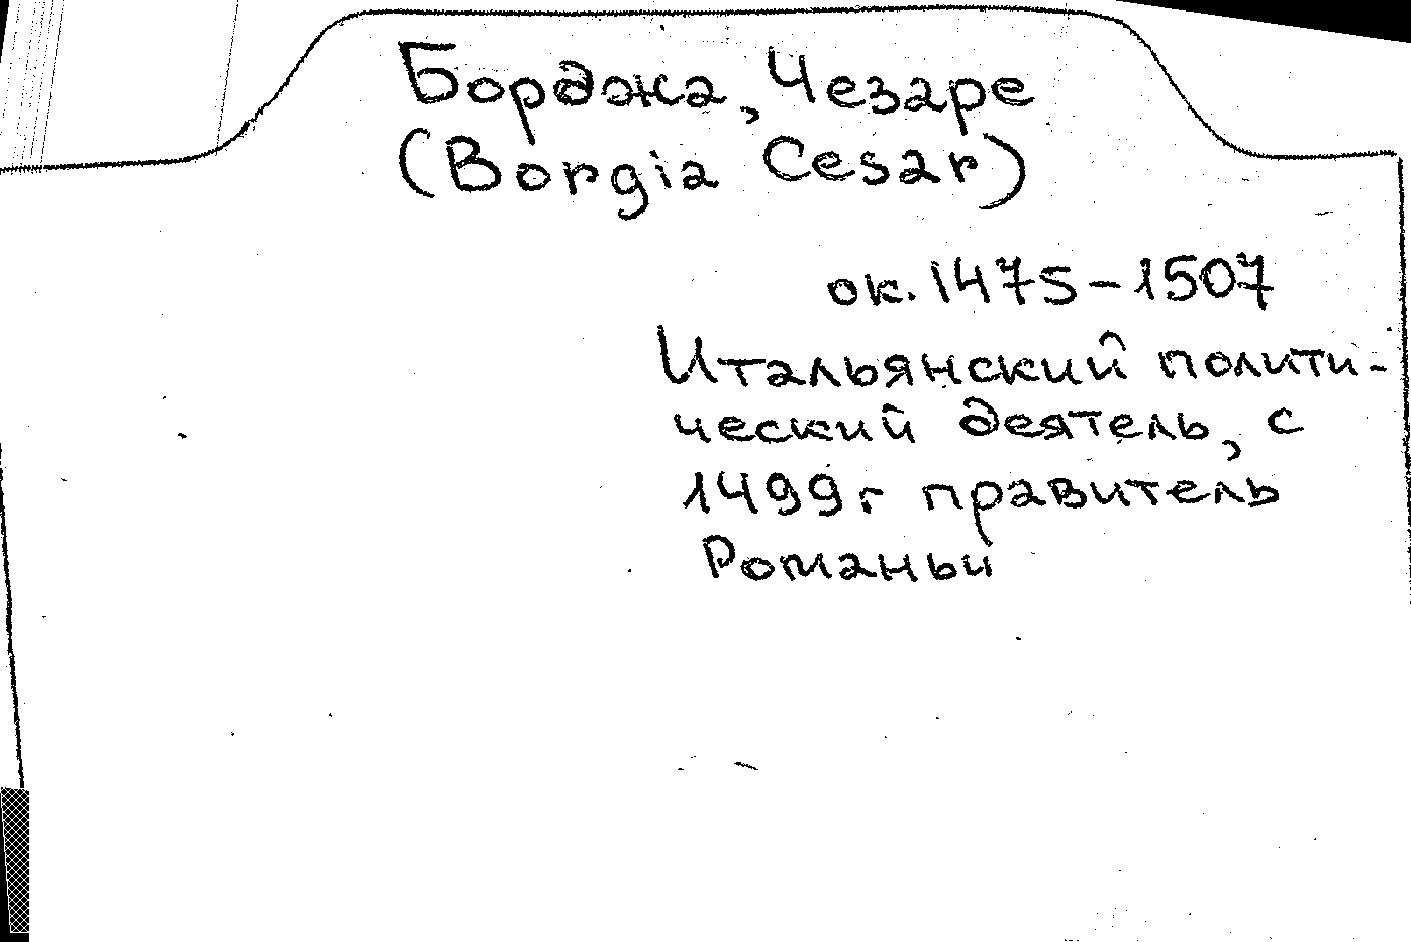 Борджа, Чезаре
(Borgia Cesar)
ок. 1475-1507
Итальянский полити-
ческий деятель, с
1499 г правитель
Романьи